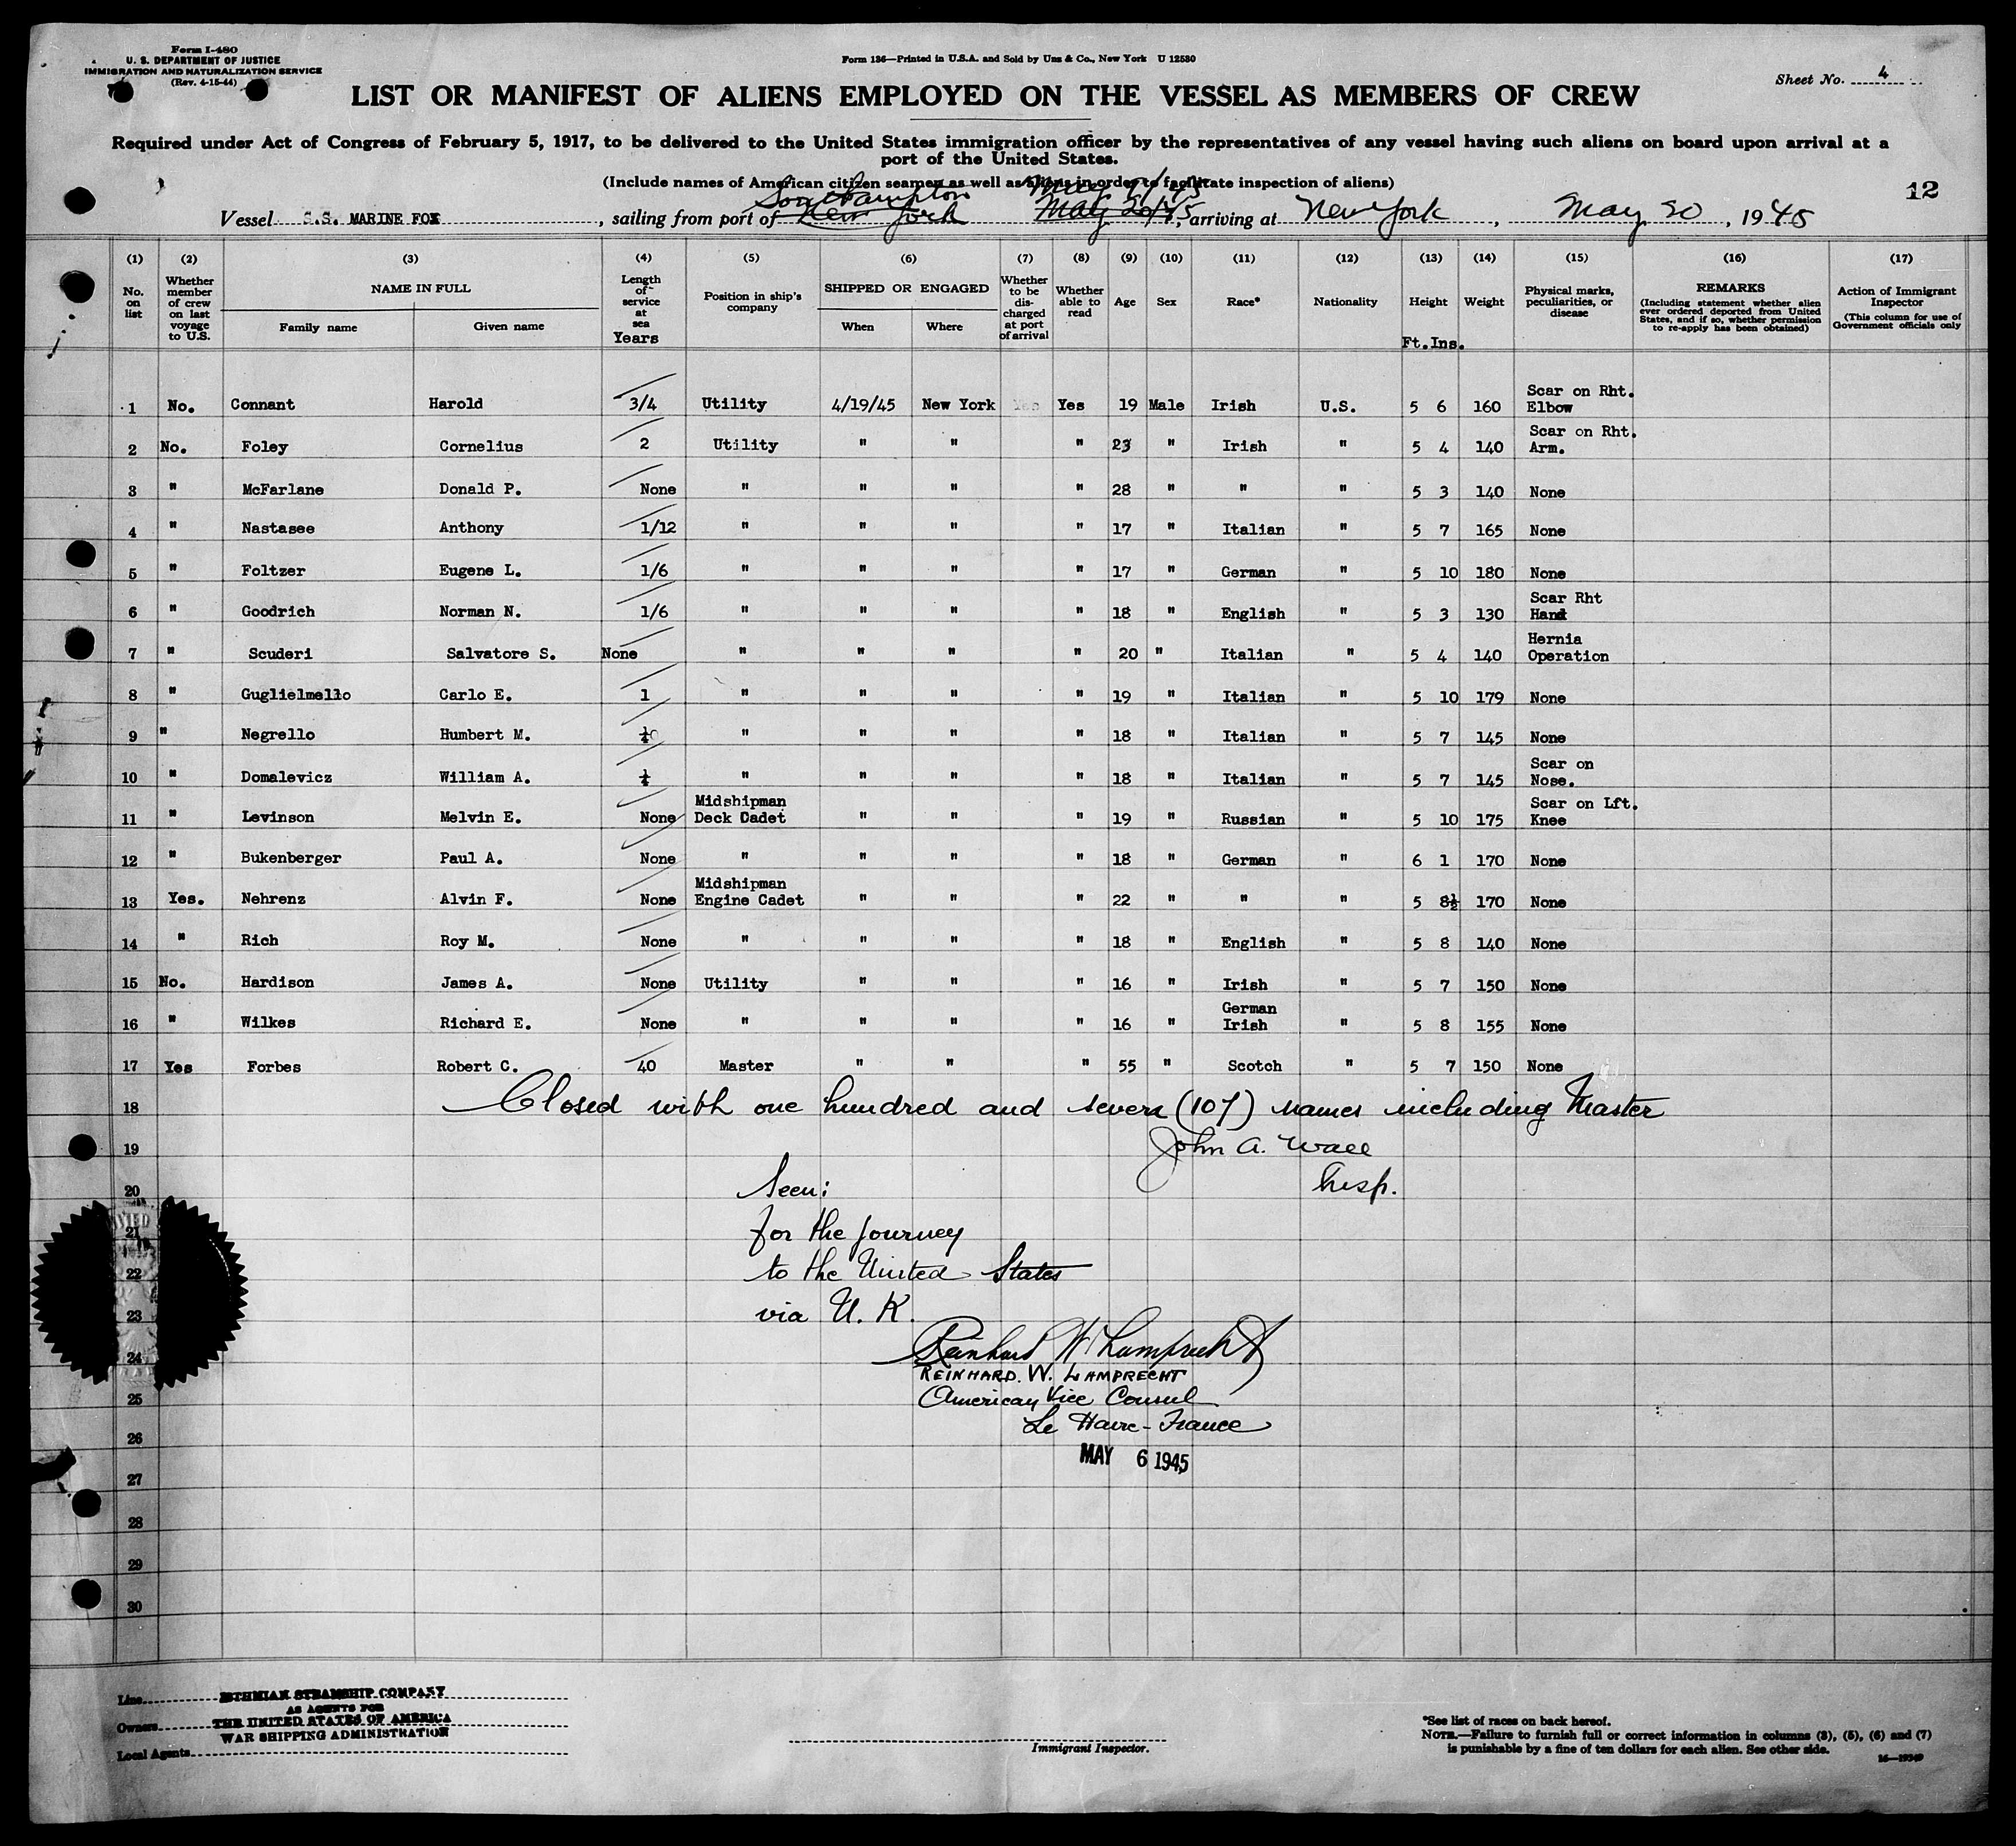 Form I-480
U. S. DEPARTMENT OF JUSTICE
IMMIGRATION AND NATURALIZATION SERVICE
(Rev. 4-15-44)
Form 136—Printed in U.S.A. and Sold by Unz & Co., New York U 12580
Sheet No. 4
LIST OR MANIFEST OF ALIENS EMPLOYED ON THE VESSEL AS MEMBERS OF CREW
Required under Act of Congress of February 5, 1917, to be delivered to the United States immigration officer by the representatives of any vessel having such aliens on board upon arrival at a
port of the United States.
(Include names of American citizen seamen as well as aliens in order to facilitate inspection of aliens)
12
Southampton
Vessel S.S. MARINE FOX, sailing from port of New York May 20/45, arriving at New York, May 20, 1945
(1) (2) (3) (4) (5) (6) (7) (8) (9) (10) (11) (12) (13) (14) (15) (16) (17)
No. on list
Whether member of crew on last voyage to U.S.
NAME IN FULL
Family name
Given name
Length of service at sea
Years
Position in ship's company
SHIPPED OR ENGAGED
When
Where
Whether to be discharged at port of arrival
Whether able to read
Age
Sex
Race*
Nationality
Height
Ft. Ins.
Weight
Physical marks, peculiarities, or disease
REMARKS
(Including statement whether alien ever ordered deported from United States, and if so, whether permission to re-apply has been obtained)
Action of Immigrant Inspector
(This column for use of Government officials only
1 No. Connant Harold 3/4 Utility 4/19/45 New York Yes Yes 19 Male Irish U.S. 5 6 160 Scar on Rht. Elbow
2 No. Foley Cornelius 2 Utility " " " 23 " Irish " 5 4 140 Scar on Rht. Arm.
3 " McFarlane Donald P. None " " " " 28 " " " 5 3 140 None
4 " Nastasee Anthony 1/12 " " " " 17 " Italian " 5 7 165 None
5 " Foltzer Eugene L. 1/6 " " " " 17 " German " 5 10 180 None
6 " Goodrich Norman N. 1/6 " " " " 18 " English " 5 3 130 Scar Rht Hand
7 " Scuderi Salvatore S. None " " " " 20 " Italian " 5 4 140 Hernia Operation
8 " Guglielmello Carlo E. 1 " " " " 19 " Italian " 5 10 179 None
9 " Negrello Humbert M. " " " " 18 " Italian " 5 7 145 None
10 " Domalevicz William A. ¼ " " " " 18 " Italian " 5 7 145 Scar on Nose.
11 " Levinson Melvin E. None Midshipman Deck Cadet " " " 19 " Russian " 5 10 175 Scar on Lft. Knee
12 " Bukenberger Paul A. None " " " " 18 " German " 6 1 170 None
13 Yes. Nehrenz Alvin F. None Midshipman Engine Cadet " " " 22 " " " 5 8½ 170 None
14 " Rich Roy M. None " " " " 18 " English " 5 8 140 None
15 No. Hardison James A. None Utility " " " 16 " Irish " 5 7 150 None
16 " Wilkes Richard E. None " " " " 16 " German Irish " 5 8 155 None
17 Yes Forbes Robert C. 40 Master " " " 55 " Scotch " 5 7 150 None
18 Closed with one hundred and seven (107) names including Master
19 John A. Wall
20 Seen: Insp.
21 for the journey
22 to the United States
23 via U. K.
24 Reinhard W Lamprecht
REINHARD. W. LAMPRECHT
25 American Vice Consul
26 Le Havre - France
MAY 6 1945
27
28
29
30
Line ISTHMIAN STEAMSHIP COMPANY
AS AGENTS FOR
Owners THE UNITED STATES OF AMERICA
WAR SHIPPING ADMINISTRATION
Local Agents
Immigrant Inspector.
*See list of races on back hereof.
NOTE.—Failure to furnish full or correct information in columns (3), (5), (6) and (7)
is punishable by a fine of ten dollars for each alien. See other side.
16—19349